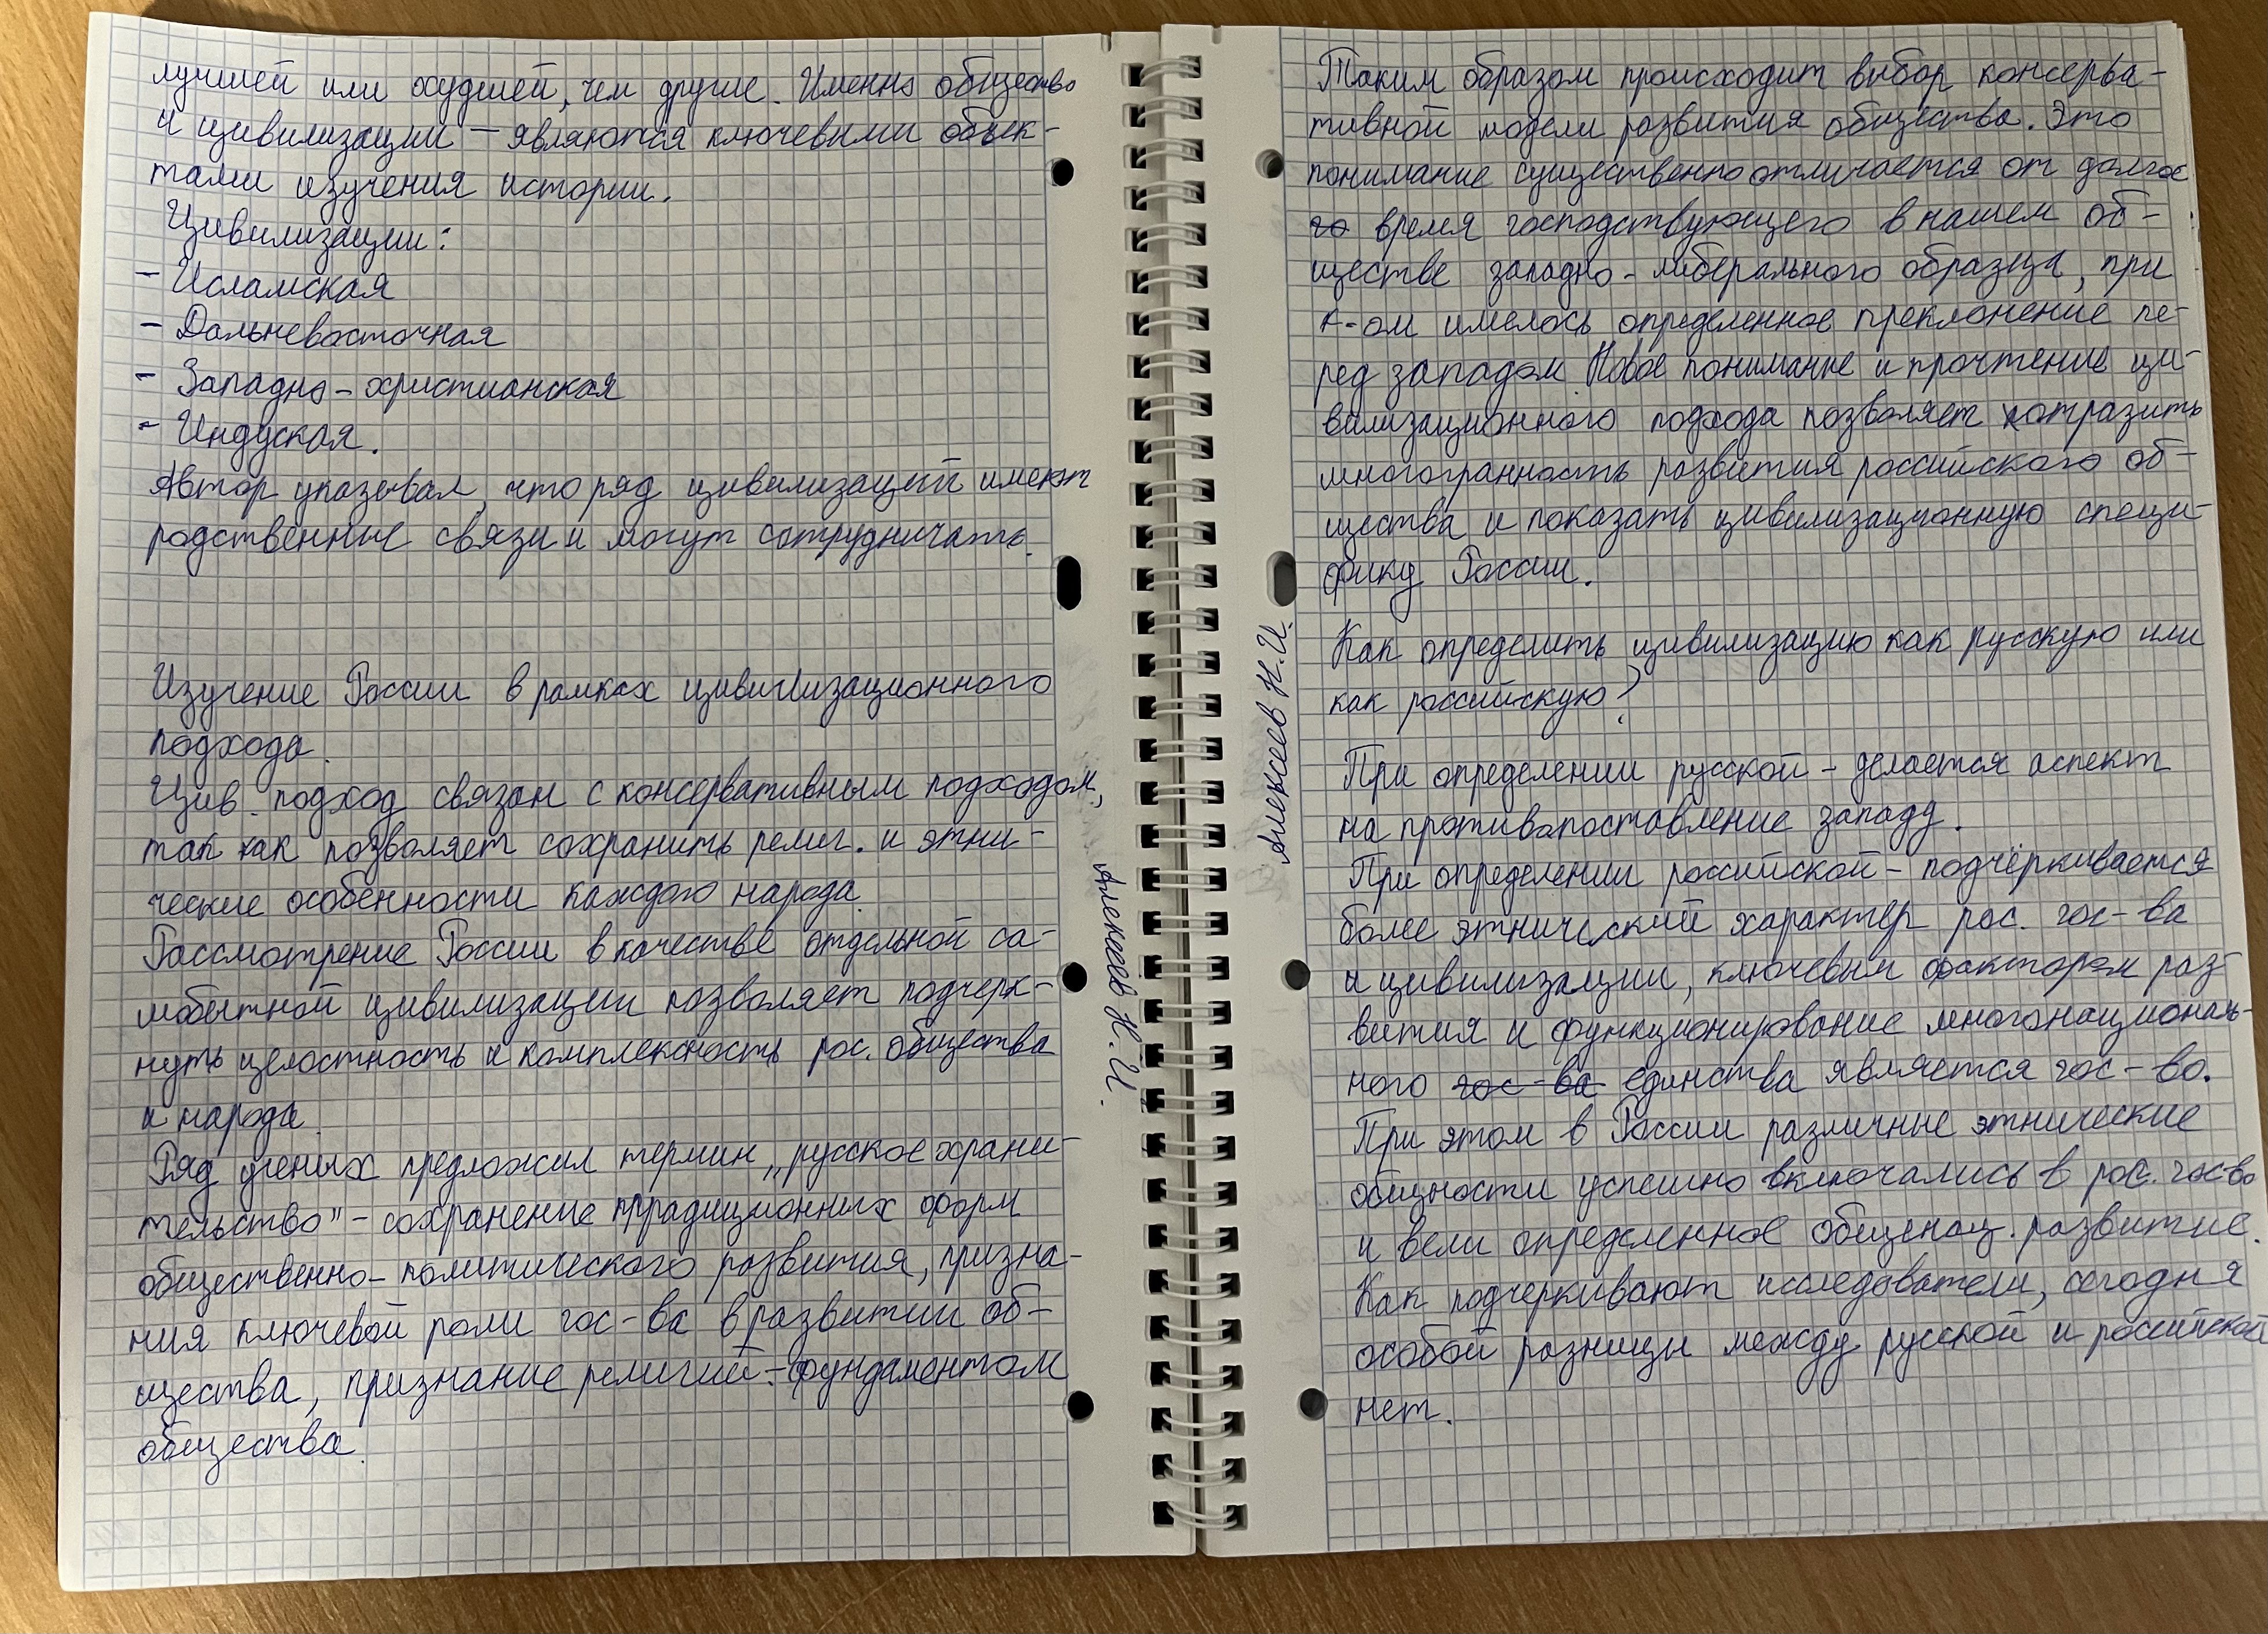 лучшей или худшей, чем другие. Именно общество
и цивилизации – являются ключевыми объек-
тами изучения истории.
Цивилизации:
- Исламская
- Дальневосточная
- Западно-христианская
- Индуская.
Автор указывал, что ряд цивилизаций имеют
родственные связи и могут сотрудничать.
Изучение России в рамках цивилизационного
подхода.
Цив. подход связан с консервативным подходом,
так как позволяет сохранить религ. и этни-
ческие особенности каждого народа.
Рассмотрение России в качестве отдельной са-
мобытной цивилизации позволяет подчерк-
нуть целостность и комплексность рос. общества
и народа.
Ряд ученых предложил термин „русское храни-
тельство" – сохранение традиционных форм
общественно-политического развития, призна-
ния ключевой роли гос-ва в развитии об-
щества, признание религий - фундаментом
общества.
Алексеев Н.И.
Таким образом происходит выбор консерва-
тивной модели развития общества. Это
понимание существенно отличается от долгое
го время господствующего в нашем об-
ществе западно-либерального образца, при
к-ом имелось определенное преклонение пе-
ред западом. Новое понимание и прочтение ци-
вилизационного подхода позволяет отразить
многогранность развития российского об-
щества и показать цивилизационную специ-
фику России.
Как определить цивилизацию как русскую или
как российскую?
При определении русской – делается аспект
на противопоставление западу.
При определении российской – подчёркивается
более этнический характер рос. гос-ва
и цивилизации, ключевым фактором раз-
вития и функционирование многонациональ-
ного гос-ва единства является гос-во.
При этом в России различные этнические
общности успешно включались в рос. гос-во
и вели определенное общенац. развитие.
Как подчеркивают исследователи, сегодня
особой разницы между русской и российской
нет.
Алексеев Н.И.